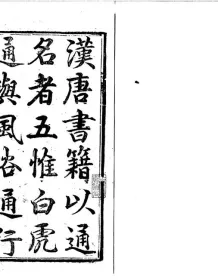 漢唐書籍以通
名者五惟白虎
通與風俗通行